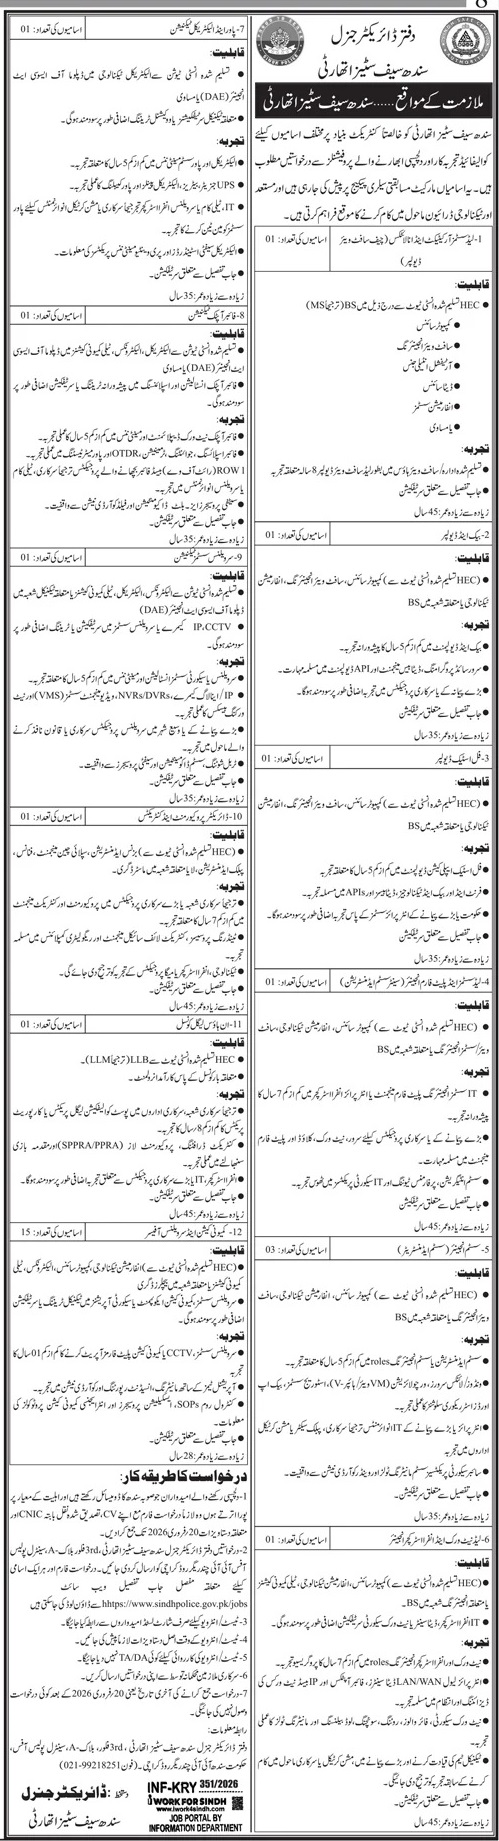 8
دفتر ڈائریکٹر جنرل
سندھ سیف سٹیز اتھارٹی
ملازمت کے مواقع......سندھ سیف سٹیز اتھارٹی
سندھ سیف سٹیز اتھارٹی کو خالصتاً کنٹریکٹ بنیاد پر مختلف اسامیوں کیلئے
کوالیفائیڈ تجربہ کار اور دلچسپی رکھنے والے پروفیشنلز سے درخواستیں مطلوب
ہیں۔ یہ اسامیاں مارکیٹ مسابقتی سیلری پیکیج پر پیش کی جارہی ہیں اور مستعد
اور ٹیکنالوجی ڈرائیون ماحول میں کام کرنے کا موقع فراہم کرتی ہیں۔
1- لیڈ سسٹمز آرکیٹیکٹ اینڈ انالاٹکس (چیف سافٹ ویئر ڈیولپر) اسامیوں کی تعداد: 01
قابلیت:
HEC تسلیم شدہ انسٹی ٹیوٹ سے درج ذیل میں BS (ترجیحاً MS)
کمپیوٹر سائنس
سافٹ ویئر انجینئرنگ
آرٹیفشل انٹیلی جنس
ڈیٹا سائنس
انفارمیشن سسٹمز
یا مساوی
تجربہ:
تسلیم شدہ ادارہ/سافٹ ویئر ہاؤس میں بطور لیڈ سافٹ ویئر ڈیولپر 8 سالہ متعلقہ تجربہ
جاب تفصیل سے متعلق سرٹیفکیشن
زیادہ سے زیادہ عمر: 45 سال
2- بیک اینڈ ڈیولپر اسامیوں کی تعداد: 01
قابلیت:
(HEC تسلیم شدہ انسٹی ٹیوٹ سے) کمپیوٹر سائنس، سافٹ ویئر انجینئرنگ، انفارمیشن
ٹیکنالوجی یا متعلقہ شعبہ میں BS
تجربہ:
بیک اینڈ ڈیولپمنٹ میں کم از کم 5 سال کا پیشہ ورانہ تجربہ۔
سرور سائڈ پروگرامنگ، ڈیٹا بیس مینجمنٹ اور API ڈیولپمنٹ میں مسلمہ مہارت۔
بڑے پیمانہ کے یا سرکاری پروجیکٹس میں تجربہ اضافی طور پر سودمند ہوگا۔
جاب تفصیل سے متعلق سرٹیفکیشن
زیادہ سے زیادہ عمر: 35 سال
3- فل اسٹیک ڈیولپر اسامیوں کی تعداد: 01
قابلیت:
(HEC تسلیم شدہ انسٹی ٹیوٹ سے) کمپیوٹر سائنس، سافٹ ویئر انجینئرنگ، انفارمیشن
ٹیکنالوجی یا متعلقہ شعبہ میں BS
تجربہ:
فل اسٹیک ایپلی کیشن ڈیولپمنٹ میں کم از کم 5 سال کا متعلقہ تجربہ
فرنٹ اینڈ اور بیک اینڈ ٹیکنالوجیز، ڈیٹا بیسز اور APIs میں مسلمہ تجربہ۔
حکومت یا بڑے پیمانے کے انٹرپرائز سسٹمز کے پاس تجربہ اضافی طور پر سودمند ہوگا۔
جاب تفصیل سے متعلق سرٹیفکیشن
زیادہ سے زیادہ عمر: 35 سال
4- لیڈ سسٹمز اینڈ پلیٹ فارم انجینئر (سینئر سسٹم ایڈمنسٹریشن) اسامیوں کی تعداد: 01
قابلیت:
(HEC تسلیم شدہ انسٹی ٹیوٹ سے) کمپیوٹر سائنس، انفارمیشن ٹیکنالوجی، سافٹ
ویئر/سسٹمز انجینئرنگ یا متعلقہ شعبہ میں BS
تجربہ:
IT سسٹمز انجینئرنگ پلیٹ فارم مینجمنٹ یا انٹرپرائز انفرااسٹرکچر میں کم از کم 7 سال کا
پیشہ ورانہ تجربہ۔
بڑے پیمانے کے یا سرکاری پروجیکٹس کیلئے سرور، نیٹ ورک، کلاؤڈ اور پلیٹ فارم
مینجمنٹ میں مسلمہ مہارت۔
سسٹم انٹیگریشن، پرفارمنس ٹیوننگ اور IT سیکورٹی پریکٹسز میں ٹھوس تجربہ۔
جاب تفصیل سے متعلق سرٹیفکیشن
زیادہ سے زیادہ عمر: 45 سال
5- سسٹم انجینئر (سسٹم ایڈمنسٹریٹر) اسامیوں کی تعداد: 03
قابلیت:
(HEC تسلیم شدہ انسٹی ٹیوٹ سے) کمپیوٹر سائنس، انفارمیشن ٹیکنالوجی، سافٹ
ویئر انجینئرنگ یا متعلقہ شعبہ میں BS
تجربہ:
سسٹم ایڈمنسٹریشن یا سسٹم انجینئرنگ roles میں کم از کم 5 سال کا متعلقہ تجربہ۔
ونڈوز/لائنکس سرورز، ورچولائزیشن (VM ویئر/ہائپر-V)، اسٹوریج سسٹمز، بیک اپ
اور ڈزاسٹر ریکوری سلوشنز کا عملی تجربہ۔
انٹرپرائز یا بڑے پیمانے کے IT انوائرمنٹس ترجیحاً سرکاری، پبلک سیکٹر یا مشن کریٹیکل
اداروں میں تجربہ
سائبر سیکورٹی پریکٹسز سسٹم مانیٹرنگ ٹولز اور وینڈر کوآرڈی نیشن سے واقفیت۔
جاب تفصیل سے متعلق سرٹیفکیشن
زیادہ سے زیادہ عمر: 35 سال
6- لیڈ نیٹ ورک اینڈ انفرااسٹرکچر انجینئر اسامیوں کی تعداد: 01
قابلیت:
HEC تسلیم شدہ انسٹی ٹیوٹ سے) کمپیوٹر سائنس، انفارمیشن ٹیکنالوجی، ٹیلی کمیونی کیشنز
یا متعلقہ شعبہ میں BS۔
IT انفرااسٹرکچر، ڈیٹا سینٹر یا نیٹ ورک سیکورٹی سرٹیفکیشن اضافی طور پر سودمند ہوگی۔
تجربہ:
نیٹ ورک اور انفرااسٹرکچر انجینئرنگ roles میں کم از کم 7 سال کا پروگریسیو تجربہ۔
انٹرپرائز لیول LAN/WAN ڈیٹا سینٹرز، فائبر آپٹکس اور IP بیسڈ نیٹ ورکس کی
ڈیزائننگ اور انتظام میں مسلمہ تجربہ۔
نیٹ ورک سیکورٹی، فائر والوز، روٹنگ، سوئچنگ، لوڈ بیلنسنگ اور مانیٹرنگ ٹولز کا عملی
تجربہ۔
ٹیکنیکل ٹیم کی قیادت کرنے اور بڑے پیمانے میں، مشن کریٹیکل یا سرکاری ماحول میں کام
کرنے کے سابقہ تجربہ کو ترجیح دی جائے گی۔
جاب تفصیل سے متعلق سرٹیفکیشن
زیادہ سے زیادہ عمر: 45 سال
7- پاور اینڈ الیکٹریکل ٹیکنیشن اسامیوں کی تعداد: 01
قابلیت:
تسلیم شدہ انسٹی ٹیوشن سے الیکٹریکل ٹیکنالوجی میں ڈپلوما آف ایسوسی ایٹ
انجینئر (DAE) یا مساوی
متعلقہ ٹیکنیکل سرٹیفکیشنز یا ووکیشنل ٹریننگ اضافی طور پر سودمند ہوگی۔
تجربہ:
الیکٹریکل اور پاور سسٹم مینٹی ننس میں کم از کم 5 سال کا متعلقہ تجربہ۔
UPS جنریٹرز، بیٹریز، الیکٹریکل پینلز اور پاور کیبلنگ کا عملی تجربہ۔
IT، ٹیلی کام یا سرویلنس انفرااسٹرکچر ترجیحاً سرکاری یا مشن کریٹیکل انوائرنمنٹس کیلئے پاور
سسٹم کو مین ٹین کرنے کا تجربہ۔
الیکٹریکل سیفٹی اسٹینڈرڈز اور پری وینٹیو مینٹی ننس پریکٹسز کی معلومات۔
جاب تفصیل سے متعلق سرٹیفکیشن۔
زیادہ سے زیادہ عمر: 35 سال
8- فائبر آپٹک ٹیکنیشن اسامیوں کی تعداد: 01
قابلیت:
تسلیم شدہ انسٹی ٹیوشن سے الیکٹریکل، الیکٹرونکس، ٹیلی کمیونی کیشنز میں ڈپلوما آف ایسوسی
ایٹ انجینئر (DAE) یا مساوی
فائبر آپٹک انسٹالیشن اور اسپلائسنگ میں پیشہ ورانہ ٹریننگ یا سرٹیفکیشن اضافی طور پر
سودمند ہوگی۔
تجربہ:
فائبر آپٹک نیٹ ورک ڈیپلائمنٹ اور مینٹی ننس میں کم از کم 5 سال کا عملی تجربہ۔
فائبر اسپلائسنگ، جوائنٹنگ، ٹرمینیشن، OTDR اور پاور میٹر ٹیسٹنگ میں عملی تجربہ۔
ROW (رائٹ آف وے) بیسڈ فائبر بچھانے والے پروجیکٹس ترجیحاً سرکاری، ٹیلی کام
یا سرویلنس انوائرنمنٹس میں تجربہ۔
سیفٹی پروسیجرز ایز۔بلٹ ڈاکیومینٹیشن اور فیلڈ کوآرڈی نیشن سے واقفیت۔
جاب تفصیل سے متعلق سرٹیفکیشن۔
زیادہ سے زیادہ عمر: 35 سال
9- سرویلنس سسٹمز ٹیکنیشن اسامیوں کی تعداد: 01
قابلیت:
تسلیم شدہ انسٹی ٹیوشن سے الیکٹرونکس، الیکٹریکل، ٹیلی کمیونی کیشنز یا متعلقہ ٹیکنیکل شعبہ میں
ڈپلوما آف ایسوسی ایٹ انجینئر (DAE)
IP، CCTV کیمرے یا سرویلنس سسٹمز میں سرٹیفکیشن یا ٹریننگ اضافی طور پر
سودمند ہوگی۔
تجربہ:
سرویلنس یا سیکورٹی سسٹمز انسٹالیشن اور مینٹی ننس میں کم از کم 5 سال کا متعلقہ تجربہ۔
IP/اینالاگ کیمرے، NVRs/DVRs، ویڈیو مینجمنٹ سسٹمز (VMS) اور نیٹ
ورکنگ بیسکس کا عملی تجربہ۔
بڑے پیمانے کے یا وسیع شہر میں سرویلنس پروجیکٹس سرکاری یا قانون نافذ کرنے
والے ماحول میں تجربہ۔
ٹربل شوٹنگ، سسٹم ڈاکیومینٹیشن اور سیفٹی پروسیجرز سے واقفیت۔
جاب تفصیل سے متعلق سرٹیفکیشن۔
زیادہ سے زیادہ عمر: 35 سال
10- ڈائریکٹر پروکیورمنٹ اینڈ کنٹریکٹس اسامیوں کی تعداد: 01
قابلیت:
(HEC تسلیم شدہ انسٹی ٹیوٹ سے) بزنس ایڈمنسٹریشن، سپلائی چین مینجمنٹ، فنانس،
پبلک ایڈمنسٹریشن، لا یا متعلقہ شعبہ میں ماسٹر ڈگری۔
تجربہ:
ترجیحاً سرکاری شعبہ یا بڑے سرکاری پروجیکٹس میں پروکیورمنٹ اور کنٹریکٹ مینجمنٹ
میں کم از کم 7 سال کا متعلقہ تجربہ۔
ٹینڈرنگ پروسیسز، کنٹریکٹ لائف سائیکل مینجمنٹ اور ریگولیٹری کمپلائنس میں مسلمہ
تجربہ
ٹیکنالوجی، انفرااسٹرکچر یا میگا پروجیکٹس کے تجربہ کو ترجیح دی جائے گی۔
جاب تفصیل سے متعلق سرٹیفکیشن۔
زیادہ سے زیادہ عمر: 45 سال
11- ان ہاؤس لیگل کونسل اسامیوں کی تعداد: 01
قابلیت:
HEC تسلیم شدہ انسٹی ٹیوٹ سے LLB (ترجیحاً LLM)۔
متعلقہ بار کونسل کے پاس کارآمد انرولمنٹ۔
تجربہ:
ترجیحاً سرکاری شعبہ، سرکاری اداروں میں پوسٹ کوالیفکیشن لیگل پریکٹس یا کارپوریٹ
پریکٹس کا کم از کم 8 سال کا تجربہ۔
کنٹریکٹ ڈرافٹنگ، پروکیورمنٹ لاز (SPPRA/PPRA) اور مقدمہ بازی
سنبھالنے میں عملی تجربہ۔
انفرااسٹرکچر، IT یا بڑے سرکاری پروجیکٹس سے متعلق تجربہ اضافی طور پر سودمند ہوگا۔
جاب تفصیل سے متعلق سرٹیفکیشن۔
زیادہ سے زیادہ عمر: 45 سال
12- کمیونی کیشن اینڈ سرویلنس آفیسر اسامیوں کی تعداد: 15
قابلیت:
(HEC تسلیم شدہ انسٹی ٹیوٹ سے) انفارمیشن ٹیکنالوجی، کمپیوٹر سائنس، الیکٹرونکس، ٹیلی
کمیونی کیشنز یا متعلقہ شعبہ میں بیچلرز ڈگری
سرویلنس سسٹمز، کمیونی کیشن ایکوپمنٹ یا سیکورٹی آپریشنز میں ٹیکنیکل ٹریننگ یا سرٹیفکیشن
اضافی طور پر سودمند ہوگی۔
تجربہ:
سرویلنس سسٹمز، CCTV یا کمیونی کیشن پلیٹ فارمز آپریٹ کرنے کا کم از کم 01 سال کا
تجربہ۔
آپریشنل ٹیمز کے ساتھ مانیٹرنگ، انسیڈنٹ رپورٹنگ اور کوآرڈی نیشن میں تجربہ۔
کنٹرول روم SOPs، اسکیلیشن پروسیجرز اور ایمرجنسی کمیونی کیشن پروٹوکولز کی
معلومات۔
جاب تفصیل سے متعلق سرٹیفکیشن۔
زیادہ سے زیادہ عمر: 28 سال
درخواست کا طریقہ کار:
1- دلچسپی رکھنے والے امیدواران جو صوبہ سندھ کا ڈومیسائل رکھتے ہیں اور اہلیت کے معیار پر
پورا اترتے ہوں وہ لازماً درخواست فارم مع اپنے CV، تصدیق شدہ نقل بابتہ CNIC اور
متعلقہ دستاویزات 20/فروری 2026 تک جمع کرادیں۔
2- درخواستیں دفتر ڈائریکٹر جنرل سندھ سیف سٹیز اتھارٹی، 3rd فلور بلاک-A، سینٹرل پولیس
آفس آئی آئی چندریگر روڈ کراچی کو ارسال کردی جائیں۔ درخواست فارم اور ہر ایک اسامی
کیلئے متعلقہ مفصل جاب تفصیل ویب سائٹ
https://www.sindhpolice.gov.pk/jobs سے ڈاؤن لوڈ کی جاسکتی ہیں
3- ٹیسٹ/انٹرویو کیلئے صرف شارٹ لسٹڈ امیدواروں سے رابطہ کیا جائے گا۔
4- ٹیسٹ/انٹرویو کے وقت اصل دستاویزات لازماً پیش کی جائیں۔
5- ٹیسٹ/انٹرویو کی کارروائی کیلئے کوئی TA/DA نہیں دیا جائے گا۔
6- سرکاری ملازمین محکمانہ توسط سے اپنی درخواستیں ارسال کریں۔
7- درخواست جمع کرانے کی آخری تاریخ یعنی 20/فروری 2026 کے بعد کوئی درخواست
وصول نہیں کی جائے گی۔
رابطہ معلومات:
دفتر ڈائریکٹر جنرل سندھ سیف سٹیز اتھارٹی، 3rd فلور، بلاک-A، سینٹرل پولیس آفس،
حکومت سندھ آئی آئی چندریگر روڈ، کراچی۔ (فون 021-99218251)
دستخط: ڈائریکٹر جنرل
سندھ سیف سٹیز اتھارٹی
INF-KRY 351/2026
I WORK FOR SINDH
www.iwork4sindh.com
JOB PORTAL BY
INFORMATION DEPARTMENT